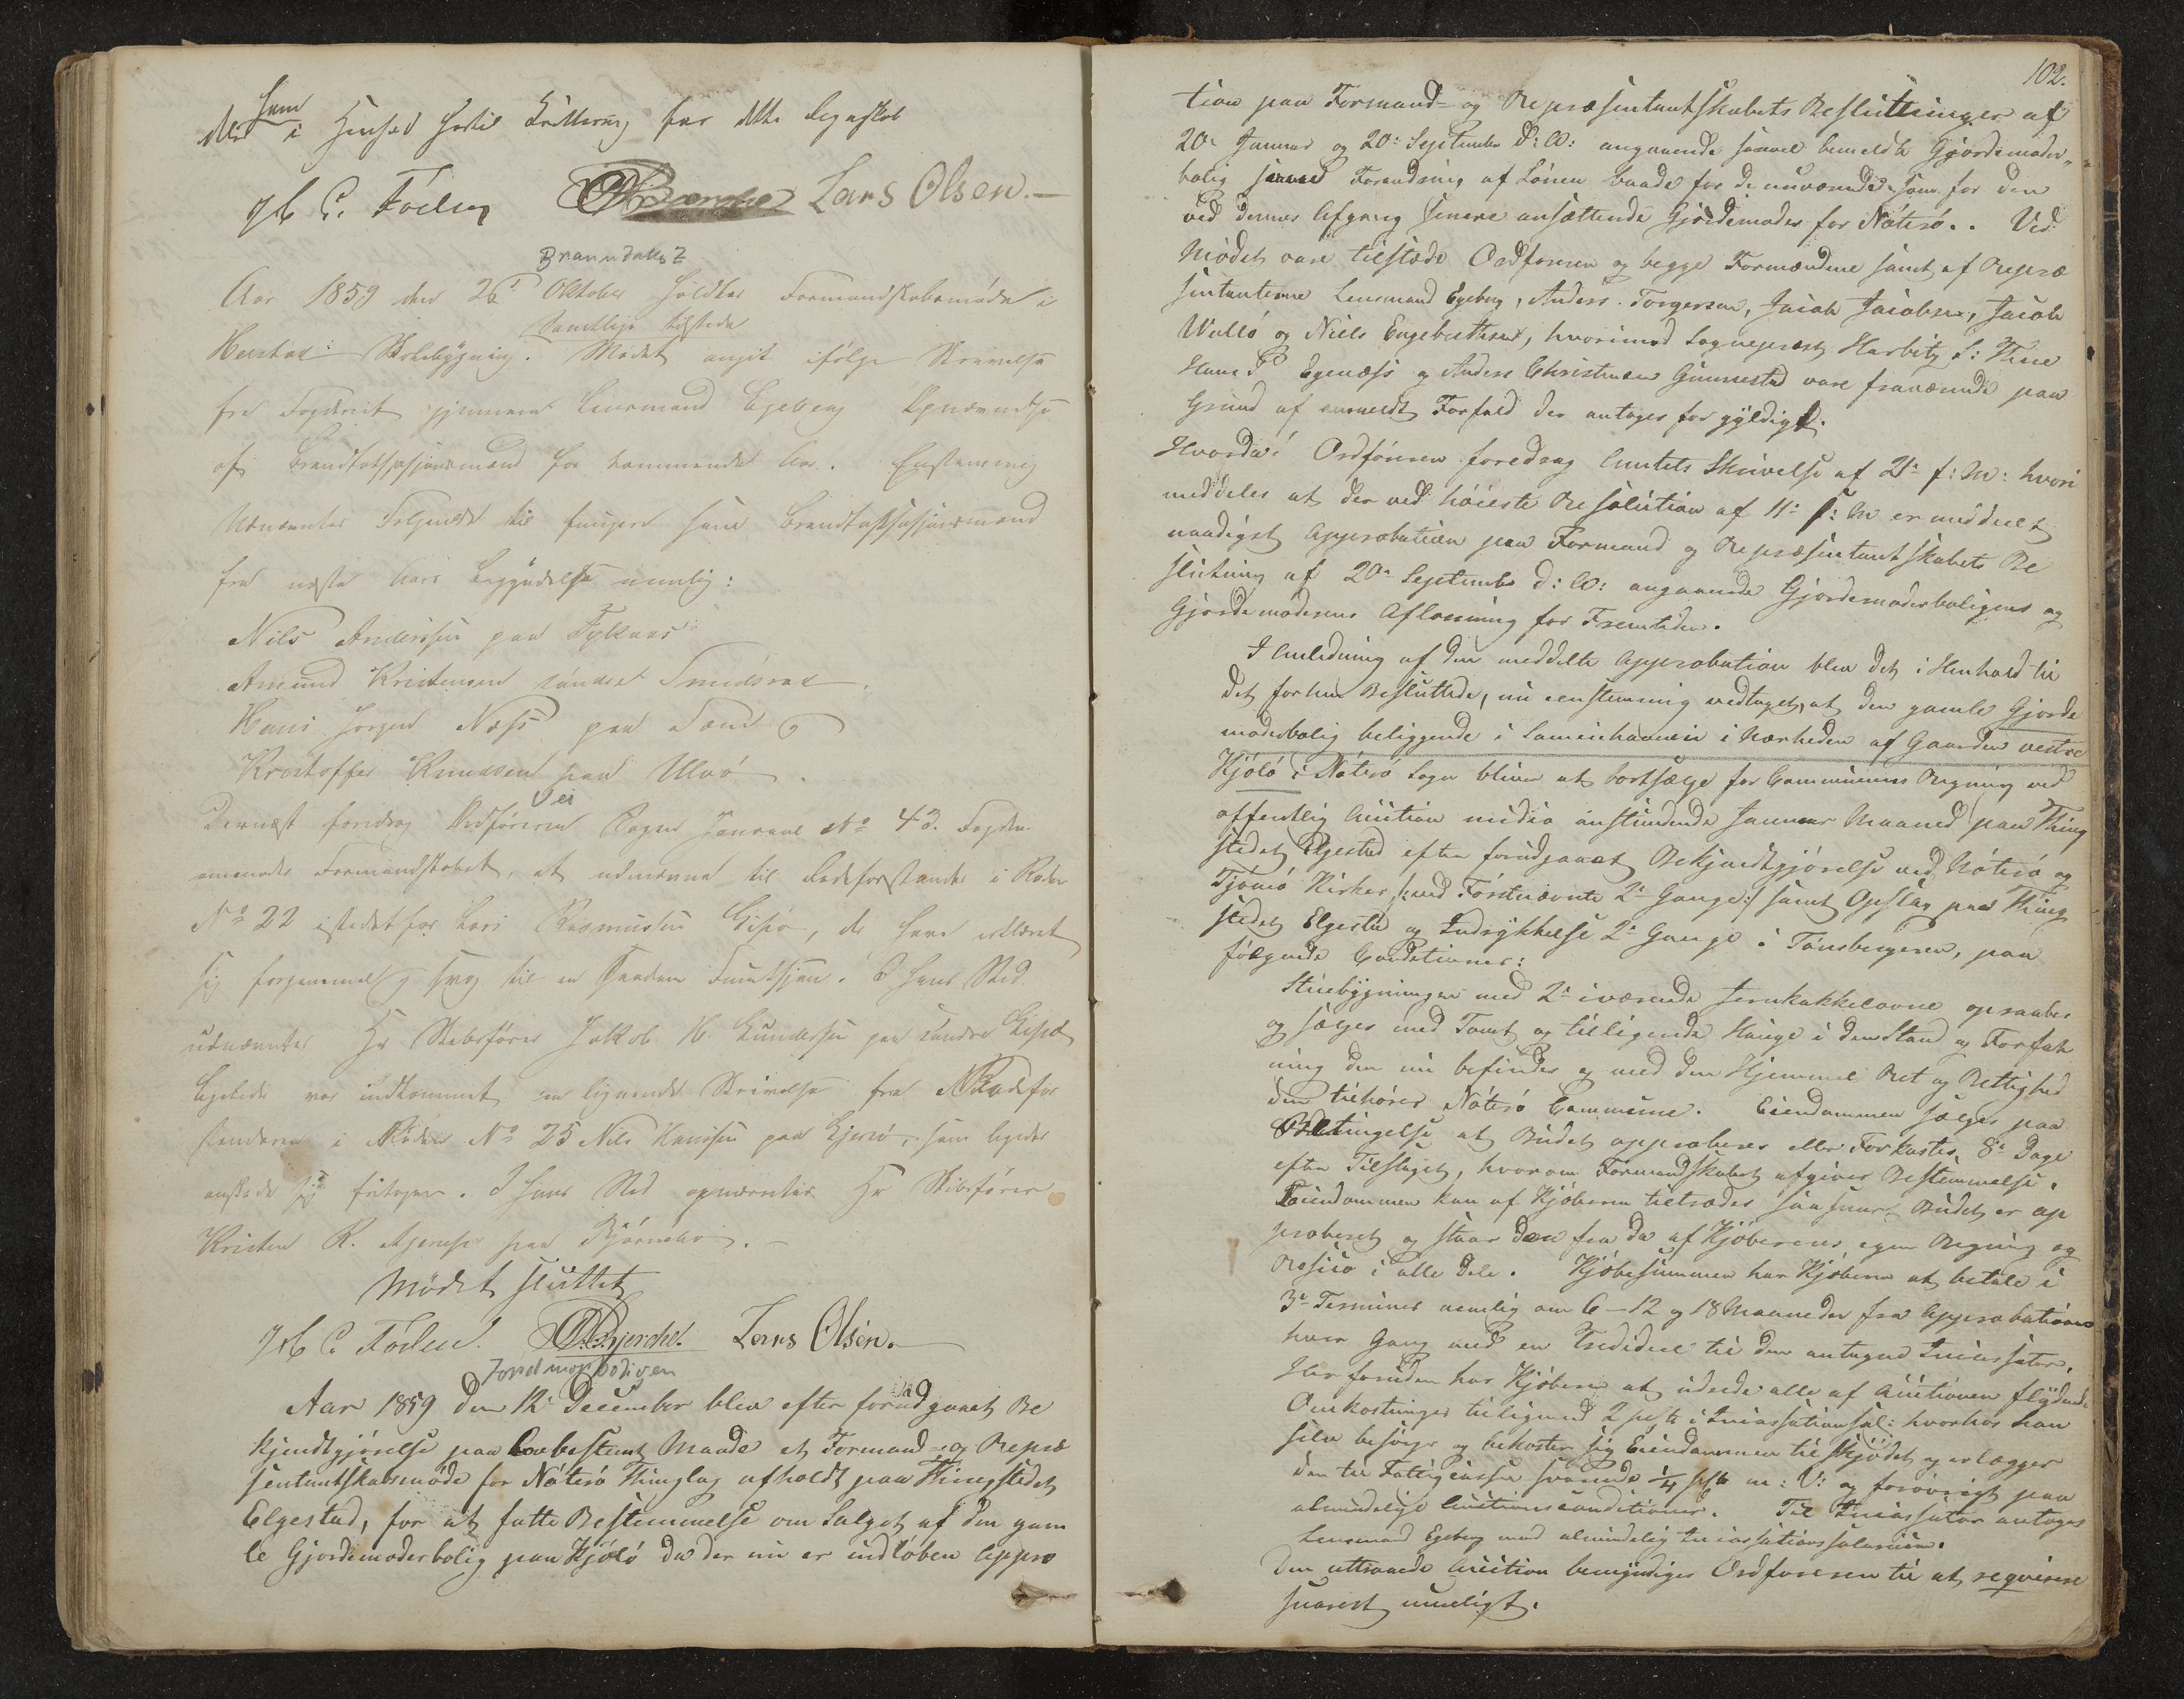 som
der i Henhold hertil Qvittering for dette Regnskab
H C. Foÿen Lars Olsen. —
Branntakst
Aar 1859 den 26de Oktober holdtes Formandskabsmøde i
Samtlige tilstede
Herstad Skolebygning. Mødet angik ifølge Skrivelse
fra Fogderiet gjennem Lensmand Egeberg Opnævnelse
af Brandtaxtasjonsmænd for kommende Aar. Enstemmig
Udnævntes Følgende til fungere som Brandtaxtasjonsmænd
fra næste Aars Begyndelse nemlig:
Nils Anderssen paa
Amund Kristensen søndre Smidsrød
Hans Jørgen Næss paa
Kristoffer Knudsen paa Ulvø.
Vei
Dernæst foredrog Ordføreren Sagen Journal No 43. Fogden
anmoder Formandskabet, at udnævne til Rodeforstander i Roden
No 22 istedetfor Lars Rasmussen Gipø, der have erklæret
sig forgammel og svag til en saadan Funktsjon. I hans Sted
udnævntes Hr Skibsfører Jakob H. Gundersen paa søndre Gipø
Ligeledes var indkommet en lignende Skrivelse fra Rodefor
standeren i Roden No 25 Nils Hanssen paa Gjerø, som ligedes
ønskede sig fritagen. I hans Sted opnævntes Hr Skibsfører
Kristen R. paa Bjørnebo. —
Mødet sluttet
H C. Foÿen. O. Bjerche. Lars Olsen. —
Jordmorboligen
Aar 1859 den 12te December blev efter forudgaaet Be
kjendtgjørelse paa lovbestemt Maade et Formand- og Repræ
sentantskabsmøde for Nøterø Thinglag afholdt paa Thingstedet
Elgestad, for at fatte Bestemmelse om Salget af den gam
le Gjordemoderbolig paa Kjøló da der nu er indløben Appro
102.
tion paa Formand- og Repræsentantskabets Beslutninger af
20de Januar og 20de September d: A: angaaende saavel bemeldte Gjordemoder-
bolig samt Forandring af Lønen baade for de nuværende som for den
ved dennes Afgang senere ansættende Gjordemoder for Nøterø. Ved
Mødet vare tilstæde Ordføreren og begge Formændene samt af Repræ
sentanterne Lensmand Egeberg, Anders Torgersen, Jacob Jacobsen, Jacob
Wulló og Niels Engebrethsen, hvorimod Sogneprest Harbitz, S: Thue
Hans Egenæss og Anders Christensen Gunnestad vare fraværende paa
Grund af anmeldt Forfald der antages for gyldigt.
Hvorda: Ordføreren foredrog Amtets Skrivelse af 21de f: M: hvori
meddeles at der ved høieste Resolution af 11te f: M er meddeelt
naadigst Approbation paa Formand og Repræsentantskabets Be
slutning af 20de September d: A: angaaende Gjordemoderboligens og
Gjordemoderens Aflønning for Fremtiden.
I Anledning af den meddelte Approbation blev det i Henhold til
det forhen Besluttede, nu eenstemmig vedtaget, at den gamle Gjorde
moderbolig beliggende i i Nærheden af Gaarden vestre
Kjøló i Nøterø Sogn bliver at bortsælge for Communens Regning ved
offentlig Auction medio anstundende Januar Maaned paa Thing
stedet Elgestad efter forudgaaet Bekjendtgjørelse ved Nøterø og
Tjømø Kirker, ved Førstnævnte 2de Gange:/ samt Opslag paa Thing
stedet Elgestad og Indrykkelse 2de Gange i Tønsbergeren, paa
følgende Conditioner:
Stuebygningen med 2de iværende Jernkakkelovne opraabes
og sælges med Tomt og tilliggende Hauge i den Stand og Forfat
ning den nu befindes og med den Hjemmel Ret og Rettighed
den tilhører Nøterø Commune. Eiendommen sælges paa
Betingelse at Budet approberes eller Forkastes 8te Dage
efter Tilslaget, hvorom Formandskabet afgiver Bestemmelse.
Eiendommen kan af Kjøberen tiltrædes saasnart Budet er ap
proberet og staar den fra da af Kjøberens egen Regning og
Resico i alle Dele. Kjøbesummen har Kjøberen at betale i
3de Terminer nemlig om 6 – 12 og 18 Maaneder fra Approbationen
hver Gang med en Trediedeel til den antagne Incassator.
Her foruden har Kjøberen at udrede alle af Auctionen flydende
Omkostninger tilligemed 2 pCt i Incassationssal: hvorhos han
selv besørge og bekoster sig Eiendommen tilskjødet og erlægger
den til Fattigcassen svarende ¼ pCt m: V: og forøvrigt paa
almindelige Auctionsconditioner. Til Incassator antages
Lensmand Egeberg mod almindelig Incassationssalarium.
Den attraaede Auction bemyndiges Ordføreren til at reqvirere
snarest mueligt.